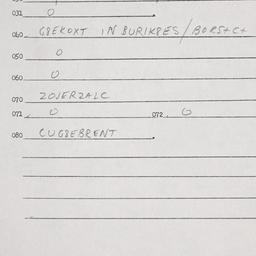 031 O
040 GREKOXT IN BURIKRES/BORSTCT
050 O
060 O
070 ZOVERZALC
071 O 072. O
080 CUGREBRENT